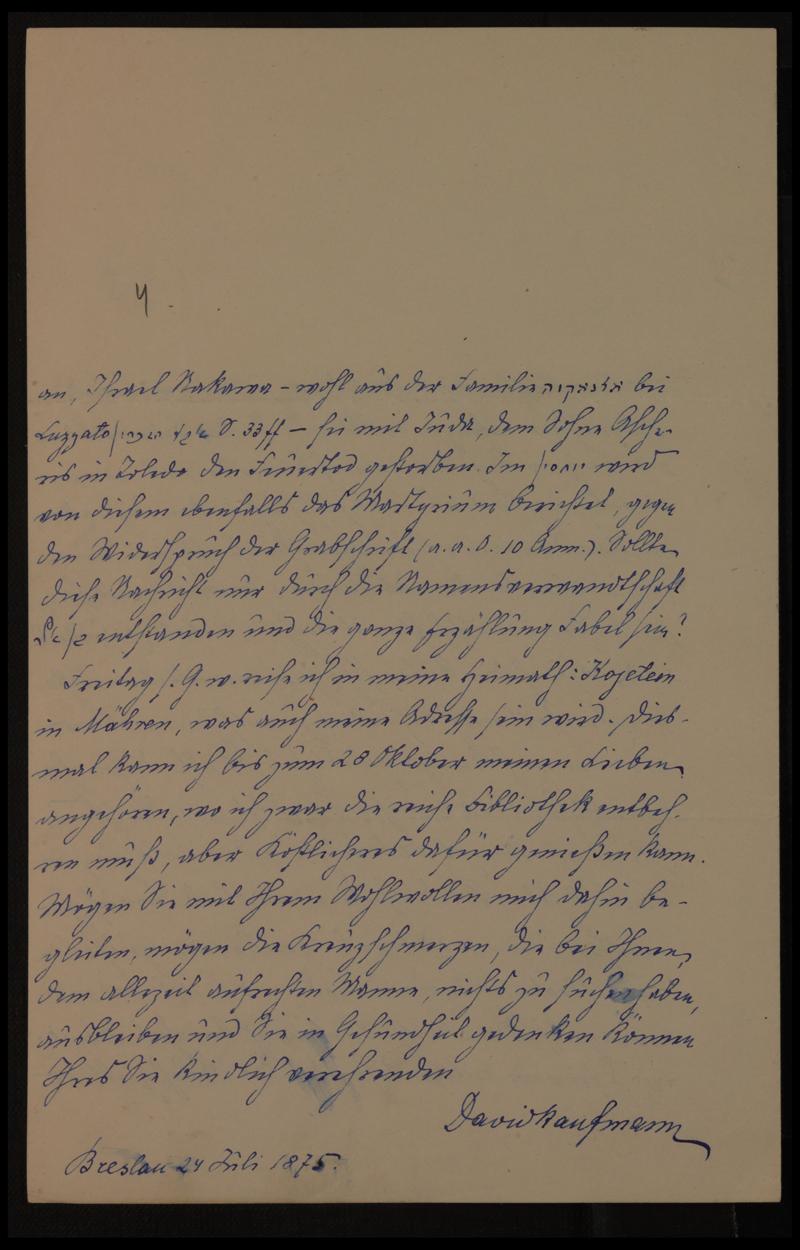 4.
an, Israel Nakawa – wohl aus der Familie אלנקוה bei
Luzzato אבני זכרון S. 33 ff – sei mit Juda, dem Sohne Asche-
ris in Toledo den Feuertod gestorben. Im יוחסין wird
von diesem ebenfalls das Martyrium berichtet, gegen
den Widerspruch der Grabschrift (a. a. O. 10 Anm.). Sollte
diese Nachricht nur durch die Namensverwandtschaft
entstanden und die ganze Erzählung Fabel sein?
Freitag s. G. w. reise ich in meine Heimath: Kojetein
in Mähren, was auch meine Adresse sein wird. Dies-
mal kann ich bis zum 28 Oktober meinen Lieben
angehören, wo ich zwar die reiche Bibliothek entbeh-
ren muß, aber Köstlicheres dafür genießen kann.
Mögen Sie mit Ihrem Wohlwollen mich dahin be-
gleiten, mögen die Kreuzschmerzen, die bei Ihnen,
dem allezeit aufrechten Manne, nichts zu suchen haben,
ausbleiben und Sie in Gesundheit gedenken können
Ihres Sie kindlich verehrenden
David Kaufmann
Breslau 24 Juli 1875.